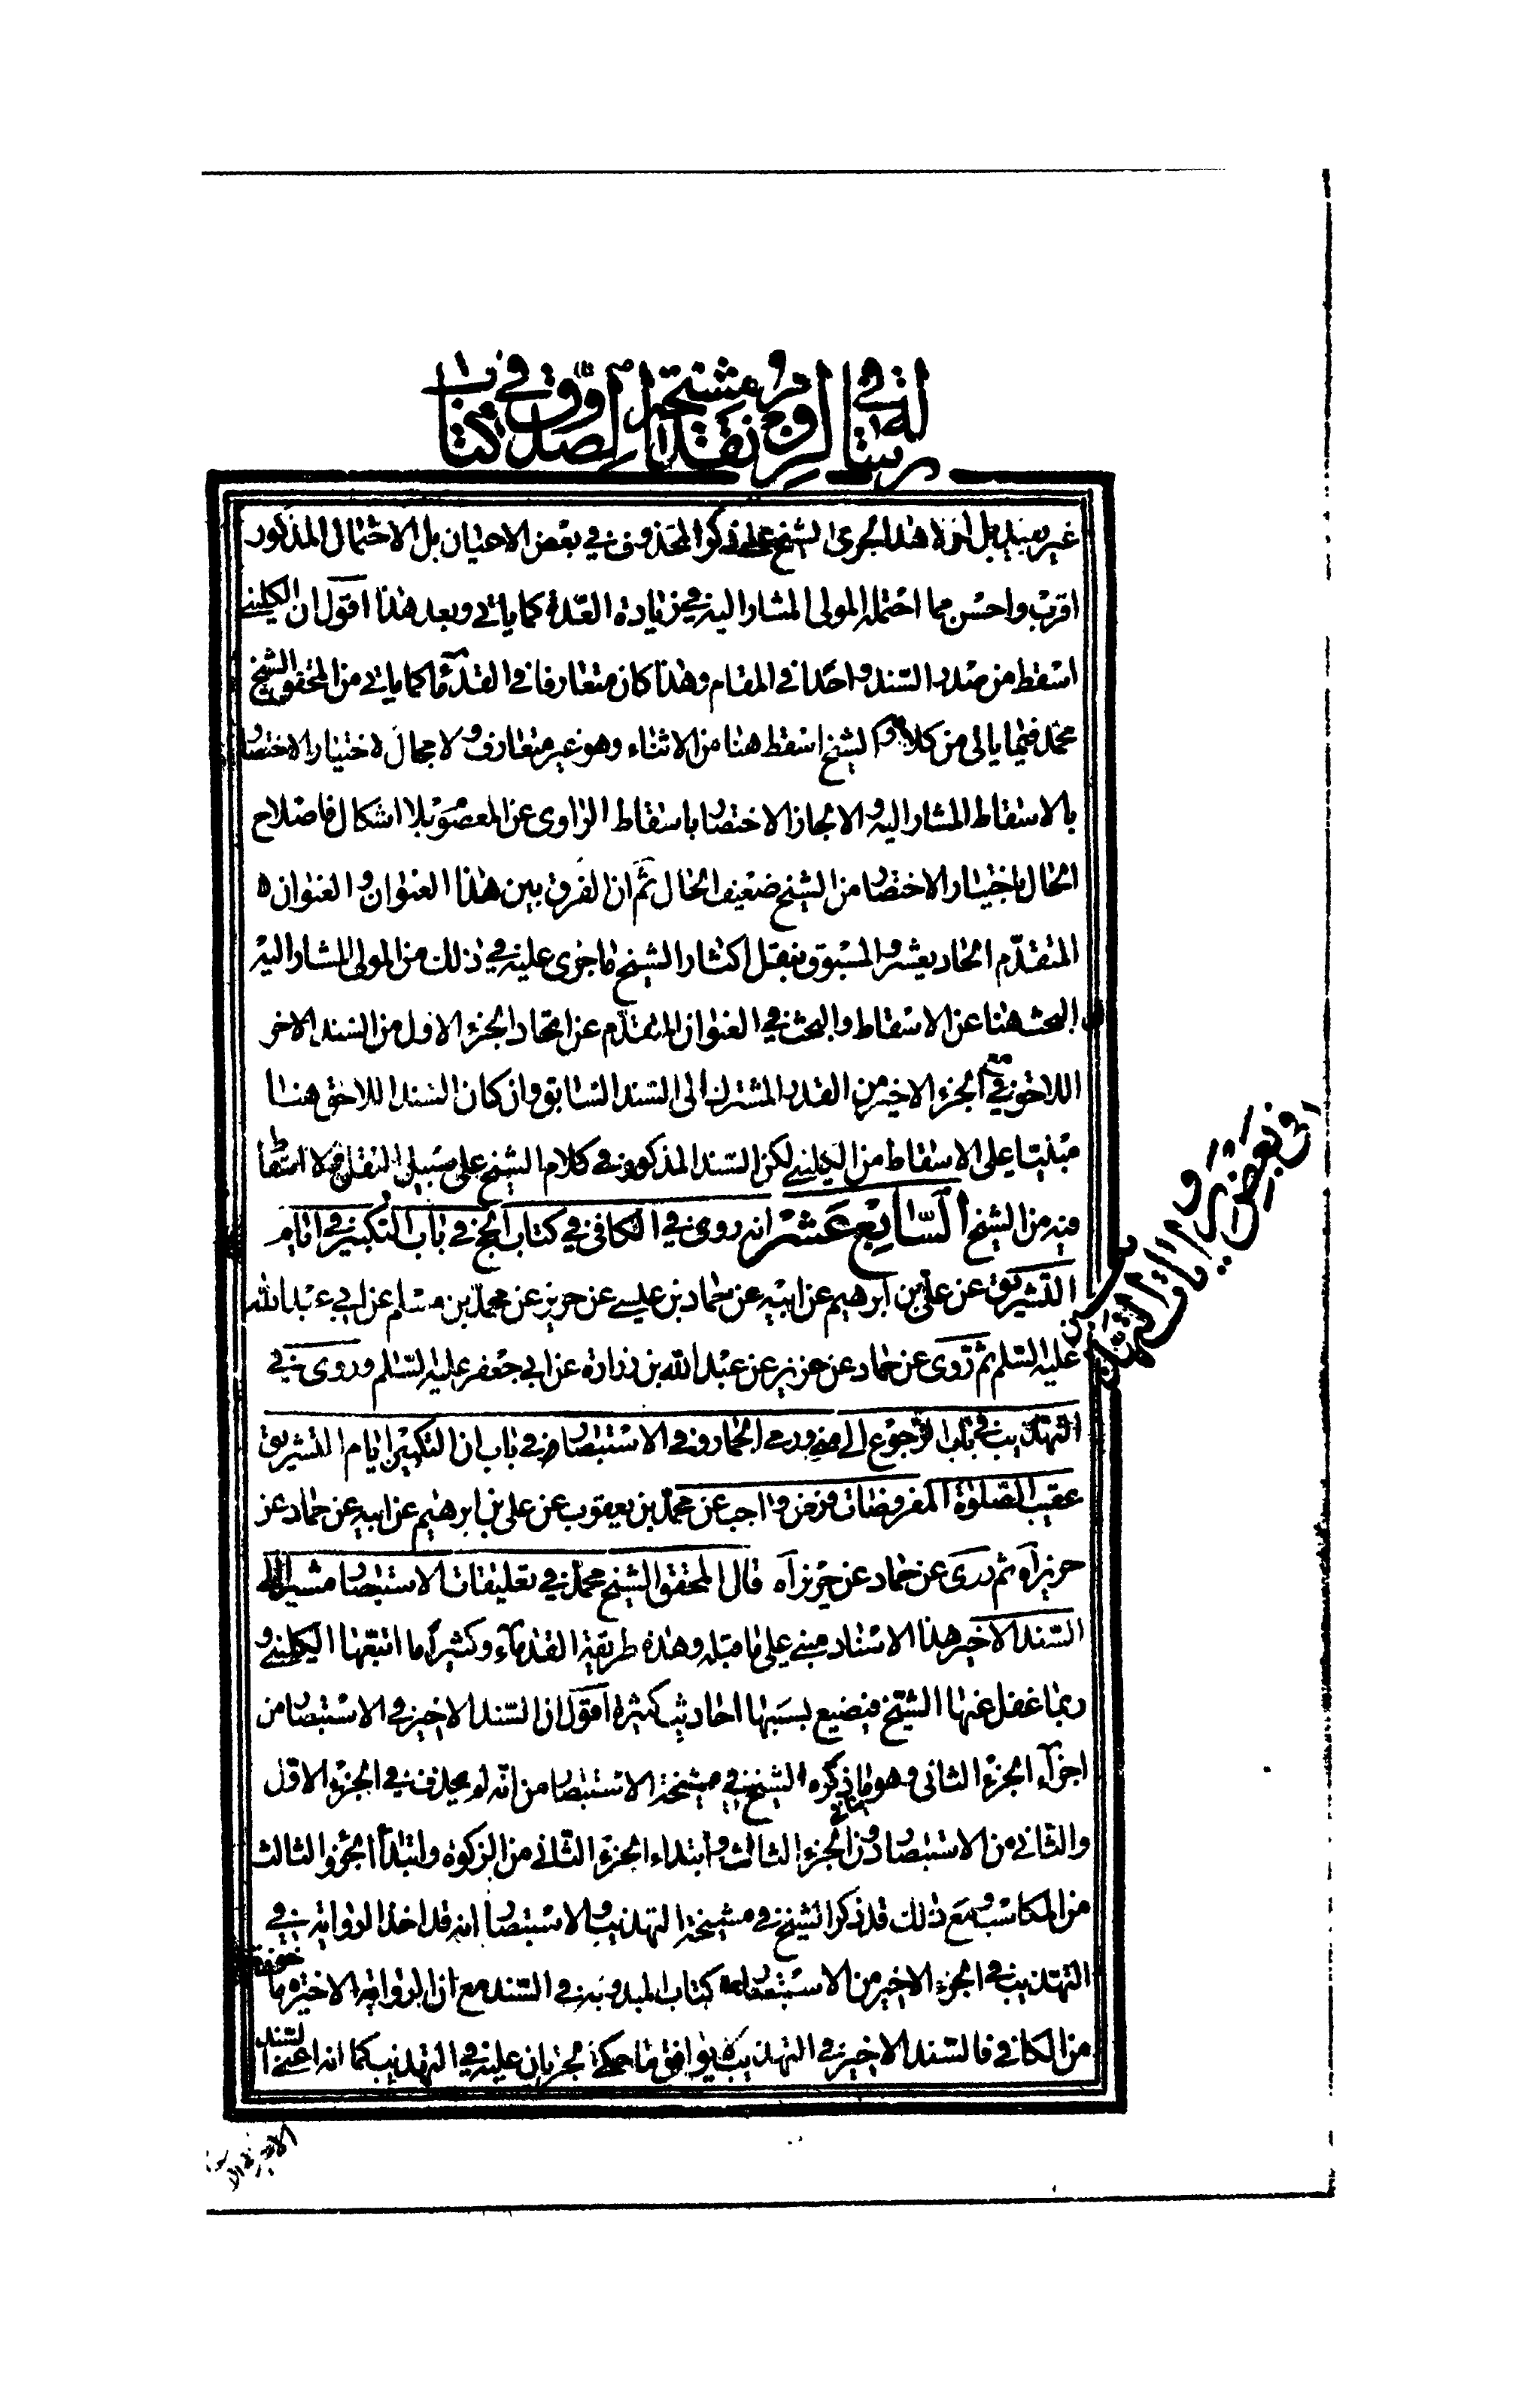 رسالة في لزوم نقد مشيخة الصدوق في كتاب
غير بعيد بل لولا هذا لجرى الشيخ على ذكر المحذوف في بعض الاحيان بل الاحتمال المذكور
اقرب واحسن مما احتمله المولى المشار اليه في زيادة العدة كما ياتي وبعد هذا اقول ان الكليني
اسقط من صدر السند واحدا في المقام وهذا كان متعارفا في القدماء كما ياتي من المحقق الشيخ
محمد فيما ياتي من كلامه والشيخ اسقط هنا من الاثناء وهو غير متعارف ولا مجال لاختيار الاختصار
بالاسقاط المشار اليه والا لجاز الاختصار باسقاط الراوى عن المعصوم بلا اشكال فاصلاح
الحال باختيار الاختصار من الشيخ ضعيف الحال ثم ان الفرق بين هذا العنوان والعنوان
المتقدم الحاديعشر والمسبوق بنقل اكثار الشيخ ما جرى عليه في ذلك من المولى المشار اليه
ان البحث هنا عن الاسقاط والبحث في العنوان المتقدم عن اتحاد الجزء الاول من السند الاخر
اللاحق مع الجزء الاخير من القدر المشترك في السند السابق وان كان السند اللاحق هنا
مبنيا على الاسقاط من الكليني لكن السند المذكور في كلام الشيخ على سبيل النقل فلا اسقاط
فيه من الشيخ السابع عشر انه روى في الكافي في كتاب الحج في باب التكبير في ايام
التشريق عن علي بن ابرهيم عن ابيه عن حماد بن عيسى عن حريز عن محمد بن مسلم عن ابي عبد الله
عليه السلم ثم روى عن حماد عن حريز عن عبد الله بن زرارة عن ابي جعفر عليه السلم وروى في
التهذيب في باب الرجوع الى منى ورمى الجمار وفي الاستبصار في باب ان التكبير ايام التشريق
عقيب الصلوة المفروضات فرض واجب عن محمد بن يعقوب عن علي بن ابرهيم عن ابيه عن حماد عن
حريز اه ثم روى عن حماد عن حريز اه قال المحقق الشيخ محمد في تعليقات الاستبصار مشيرا الى
السند الاخير هذا الاسناد مبنى على ما قبله وهذه طريقة القدماء وكثيرا ما اتبعها الكليني و
ربما غفل عنها الشيخ فيضيع بسببها احاديث كثيرة اقول ان السند الاخير في الاستبصار من
اجزاء الجزء الثاني وهو ما ذكره الشيخ في مشيخة الاستبصار من انه لم يحذف في الجزء الاول
والثاني من الاستبصار دون الجزء الثالث وابتداء الجزء الثاني من الزكوة وابتدا الجزء الثالث
من المكاسب ومع ذلك قد ذكر الشيخ في مشيخة التهذيب والاستبصار انه قد اخذ الرواية في
التهذيب في الجزء الاخير من الاستبصار من كتاب المبدو به في السند مع ان الرواية الاخيرة ماخوذة
من الكافي فالسند الاخير في التهذيب لا يوافق ما حكى جريان عليه في التهذيب كما انه اعني السند